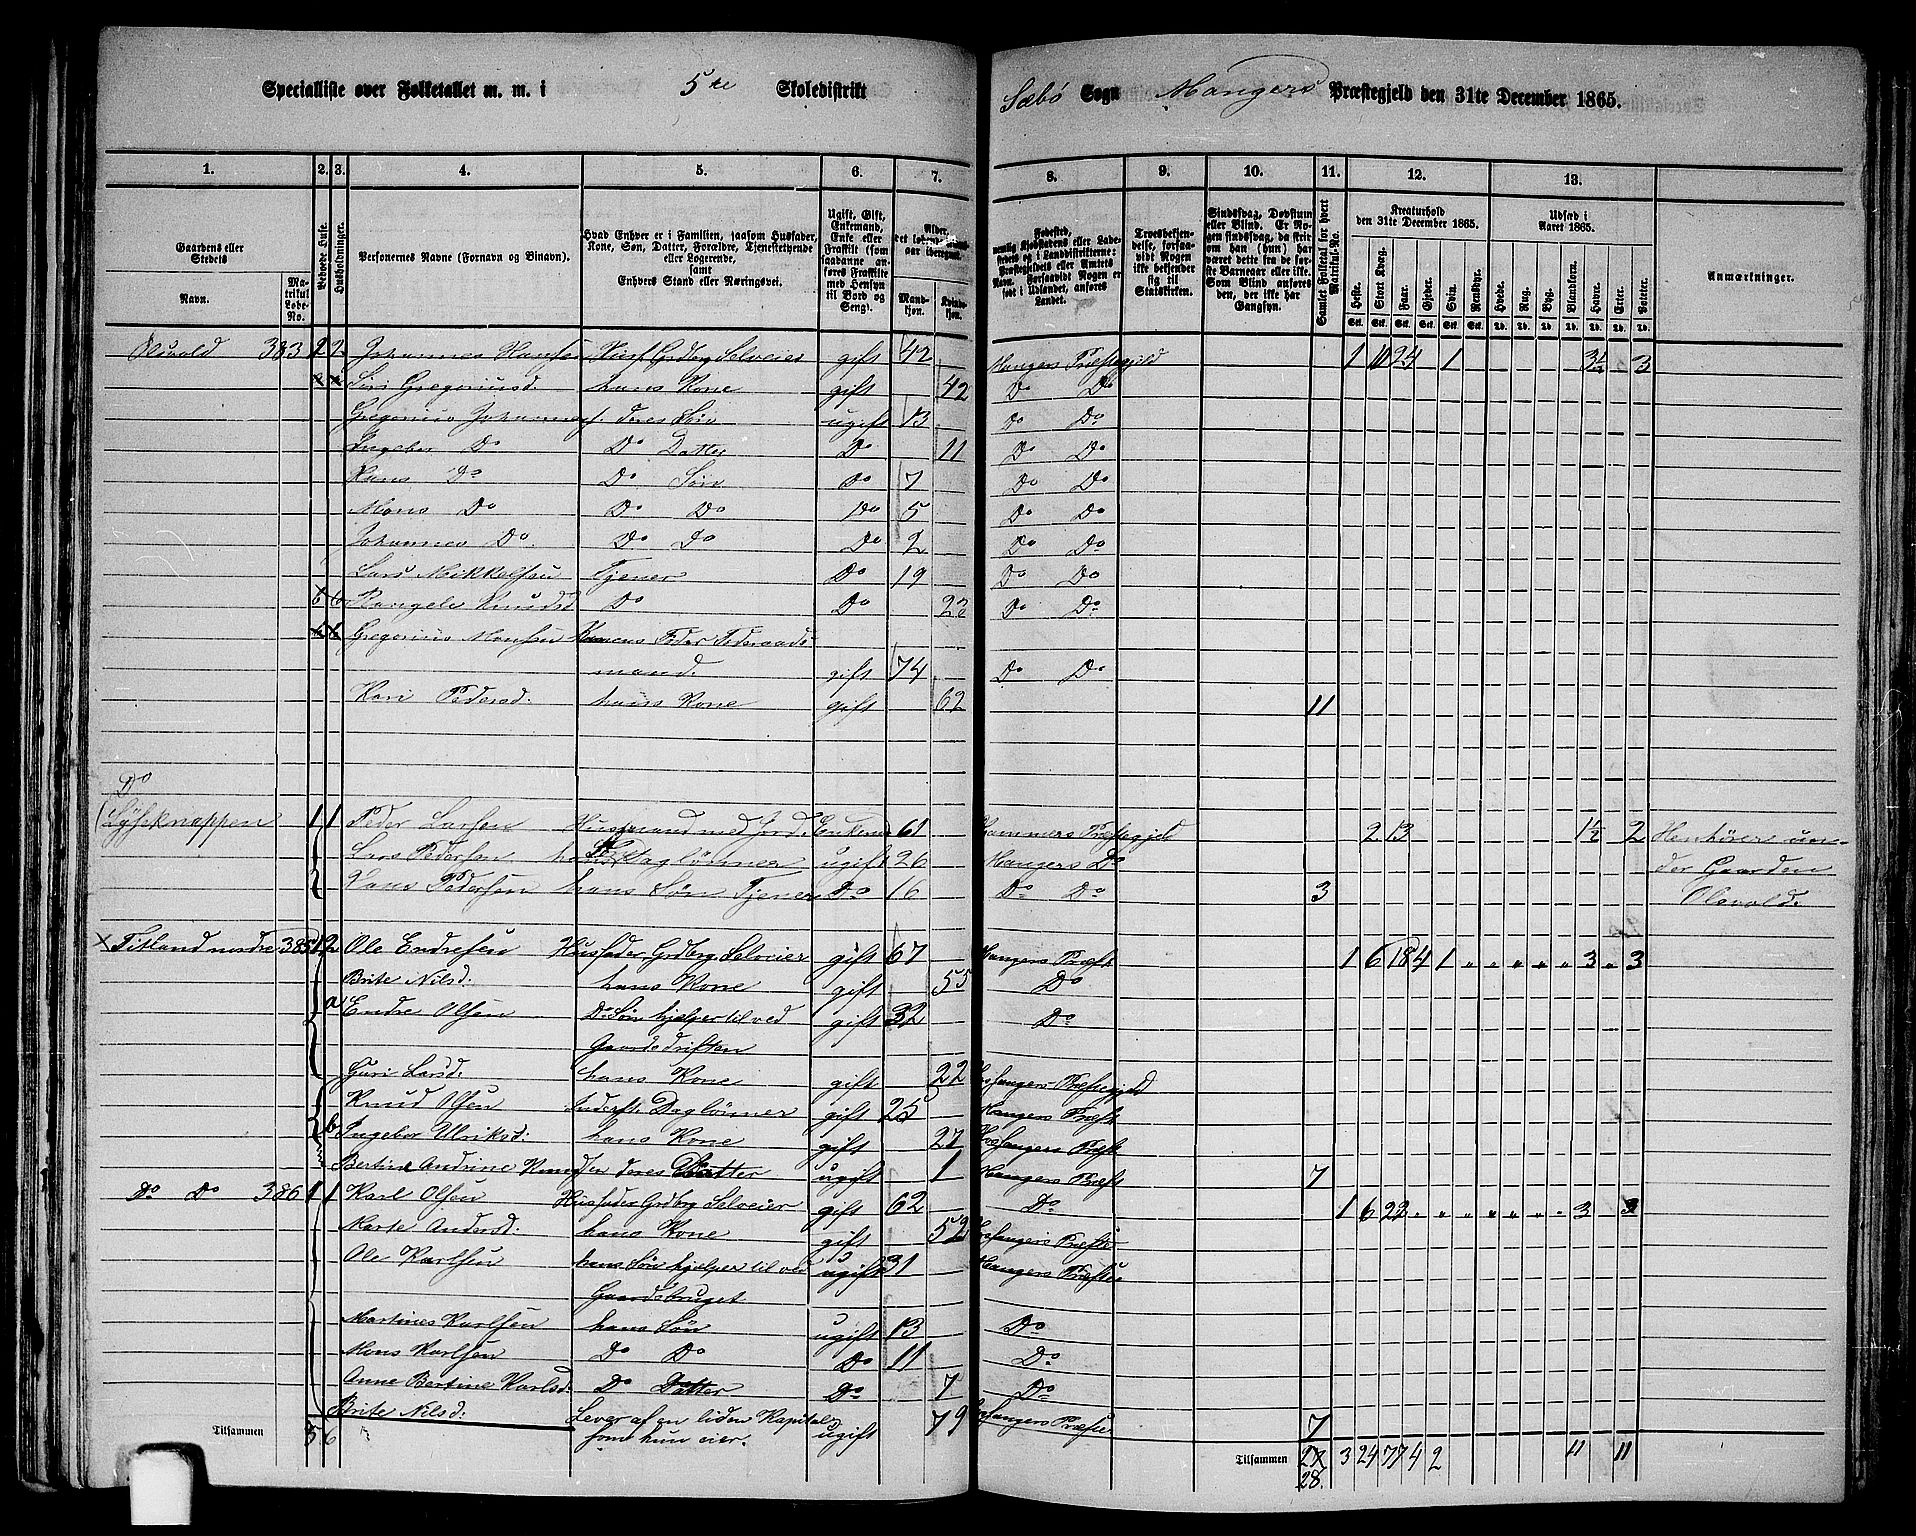 Specialliste over Folketallet m. m. i 5te Skoledistrikt Sæbø Sogn Mangers Præstegjeld den 31te December 1865.
1. 2. 3. 4. 5. 6. 7. 8. 9. 10. 11. 12. 13.
Gaardens eller Stedets
Navn.
Matrikul Løbe-No.
Beboede Huse.
Husholdninger.
Personernes Navne (Fornavn og Binavn).
Hvad Enhver er i Familien, saasom Husfader, Kone, Søn, Datter, Forældre, Tjenestetyende eller Logerende, samt Enhvers Stand eller Næringsvei.
Ugift, Gift, Enkemand, Enke eller Fraskilt (som saadanne anføres Fraskilte med Hensyn til Bord og Seng).
Alder,
Mandkjøn.
Kvindekjøn.
Fødested, nemlig Kjøbstadens eller Ladestedets og i Landdistrikterne: Præstegjeldets eller Amtets Navn. Forsaavidt Nogen er født i Udlandet, anføres Landet.
Troesbekjendelse, forsaavidt Nogen ikke bekjender sig til Statskirken.
Sindssvag, Døvstum eller Blind. Er Nogen sindssvag, da skriver om han (hun) har været dette fra de første Barneaar eller ikke. Som Blind anføres den, der ikke har Gangsyn.
Samlet Folketal for hvert Matrikul-No.
Kreaturhold den 31te December 1865.
Heste. Stort Kvæg. Faar. Gjeder. Svin. Rensdyr.
Udsæd i Aaret 1865.
Hvede. Rug. Byg. Blandkorn. Havre. Erter. Poteter.
Anmærkninger.
Olsvold 383 Johannes Hansen Husf Grdbr Selveier gift 42 Mangers Præstegjeld 1 10 24 1 3½ 3
Gregeriusd. hans Kone gift 42 Do Do
Gregerius Johannes deres Søn ugift 13 Do Do
Ingebor Do Do Datter Do 11 Do Do
Hans Do Do Søn Do 7 Do Do
Mons Do Do Do Do 5 Do Do
Johannes Do. Do Do Do 2 Do Do
Lars Mikkelsen Tjener Do 19 Do Do
Knudsd Do Do 23 Do Do
Gregerius Monsen Konens Fader Føderaads
mand. gift 74 Do Do
Kari Pedersd. hans Kone gift 62 11
Do
(Lyseknappen 1 1 Peder Larsen Husmand med Jord Enkem. 61 Hammers Præstegjeld 2 13 1½ 2 Henhører un-
Lars Pedersen hans Søn Daglønner ugift 26 Mangers Do der Gaarden
Hans Pedersen hans Søn Tjener Do 16 Do Do 3 Olsvold.
x Titland nordre 385 1 2 Ole Endresen Husfader Grdbrg Selveier gift 67 Mangers Præst 1 6 18 4 1 " " " " 3 " 3
Brite Nilsd. hans Kone gift 55 Do
a Endre Olsen Do Søn hjelper til ved gift 32 Do
Gaardsdriften
Guri Larsd. hans Kone gift 22 Hosangers Præstegjeld
Knud Olsen Inderst Daglønner gift 25 Mangers Præst
b Ingebor Ulriksd: hans Kone gift 27 Hosangers Præst
Bertine Andrine Knudsen deres Datter ugift 1 Mangers Præst 7
Do Do 386 1 1 Karl Olsen Husfader Grdbrg Selveier gift 62 Do 1 6 22 " " " " " " " 3 3
Marte Andersd: hans Kone gift 52 Hosangers Præste
Ole Karlsen hans Søn hjelper til ved ugift 31 Mangers Præste
Gaardsbruget
Martines Karlsen hans Søn ugift 13 Do
Mons Karlsen Do Do Do 11 Do
Anne Bertine Karlsd: Do Datter Do 7 Do
Brite Nilsd: Lever af en liden Kapital ugift 79 Hosangers Præste 7
Tilsammen 5 6 som hun eier.
Tilsammen 27 3 24 77 4 2 11 11
28.